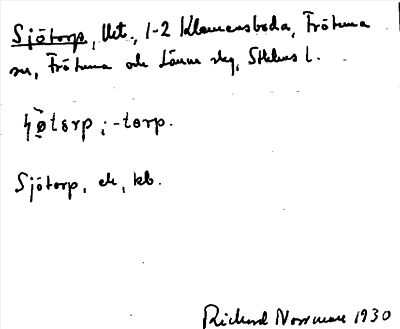 Sjötorp, lht., 1-2 Klemensboda, Frötuna
sn, Frötuna och Länna skg, Sthlms l.
ɧø̀tɔrp ; -tɔrp.
Sjötorp, ek, kb.
Richard Norrman 1930